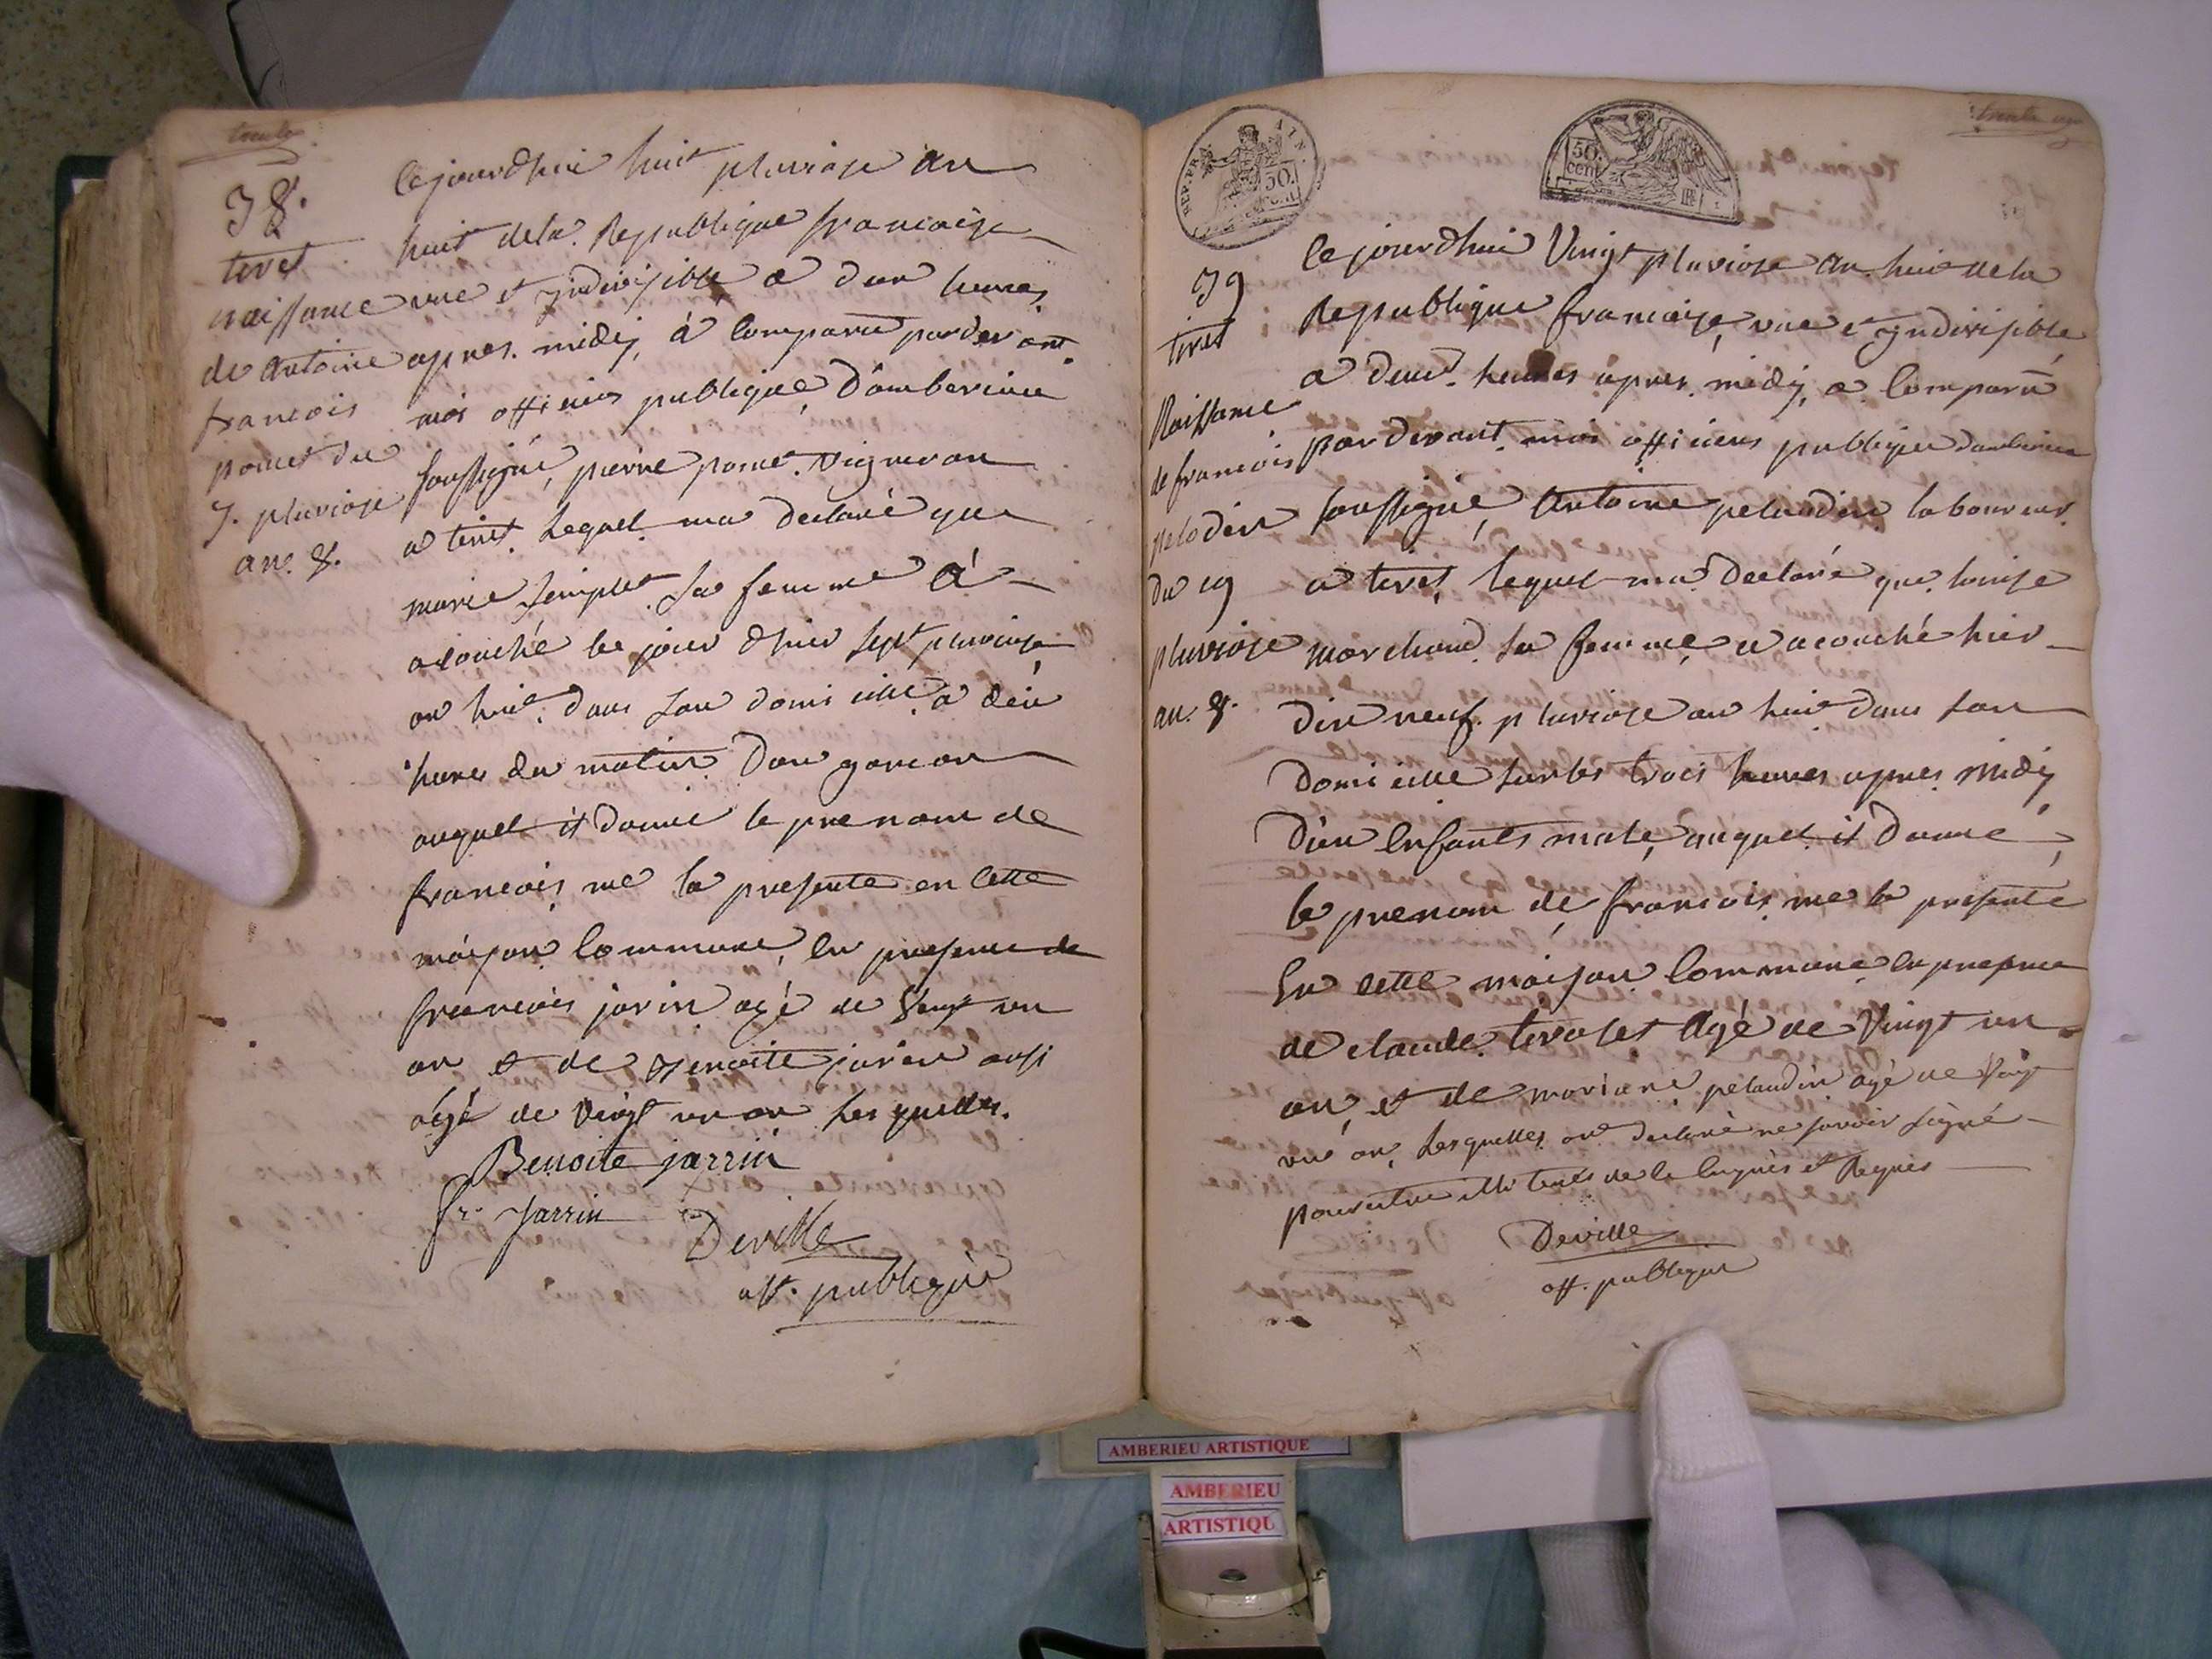 trente
38.
tiret
naissance
de antoine
francois
pomet du
7. pluviose
an. 8.
Cejourdhui huit pluviose an
huit de la Republique francaise
une et yndivisible a deux heures
apres midy, à comparu pardevant
moi officier publique D'amberieux
soussigné, pierre pomet vigneron
a tiret. Lequel ma declaré que
marie simplet sa femme à
acouché le jour dhier sept pluviose
an huit dans son domicille a dix
heures du matin D'un garcon
auquel it donné le prenom de
francois me la presente en cette
maison commune, en presence de
francois jarin agé de vingt un
an et de Benoite jarin ausi
agé de vingt un an Lesquelles.
Benoite jarrin
fr. jarrin
Deville
off. publique
trente un
REP. FR.
AIN.
50.
cent.
50.
cent.
39
tiret
Naissance
de francois
pelodin
du 19
pluviose
an. 8.
Cejourdhui Vingt pluviose an huit de la
Republique francaise, une et yndivisible
a deux heures apres midy, a comparu
par devant moi officiers publique damberieux
soussigné, Antoine pelaudin laboureur
a tiret, lequel ma declaré que louise
marchand sa femme a acouché hier
dix neuf pluviose an huit dans son
Domicille sur les trois heures apres midy
D'un Enfants male, auquel it donné
le prenom de francois me la presente
En cette maison commune en presence
de claude tiraset Agé de Vingt un
an, et de mariane pelaudin agé de vingt
un an, Lesquelles ont declaré ne savoir signé
pour etre illiteres de le enquis et Requis
Deville
off. publique
AMBERIEU ARTISTIQUE
AMBERIEU
ARTISTIQU